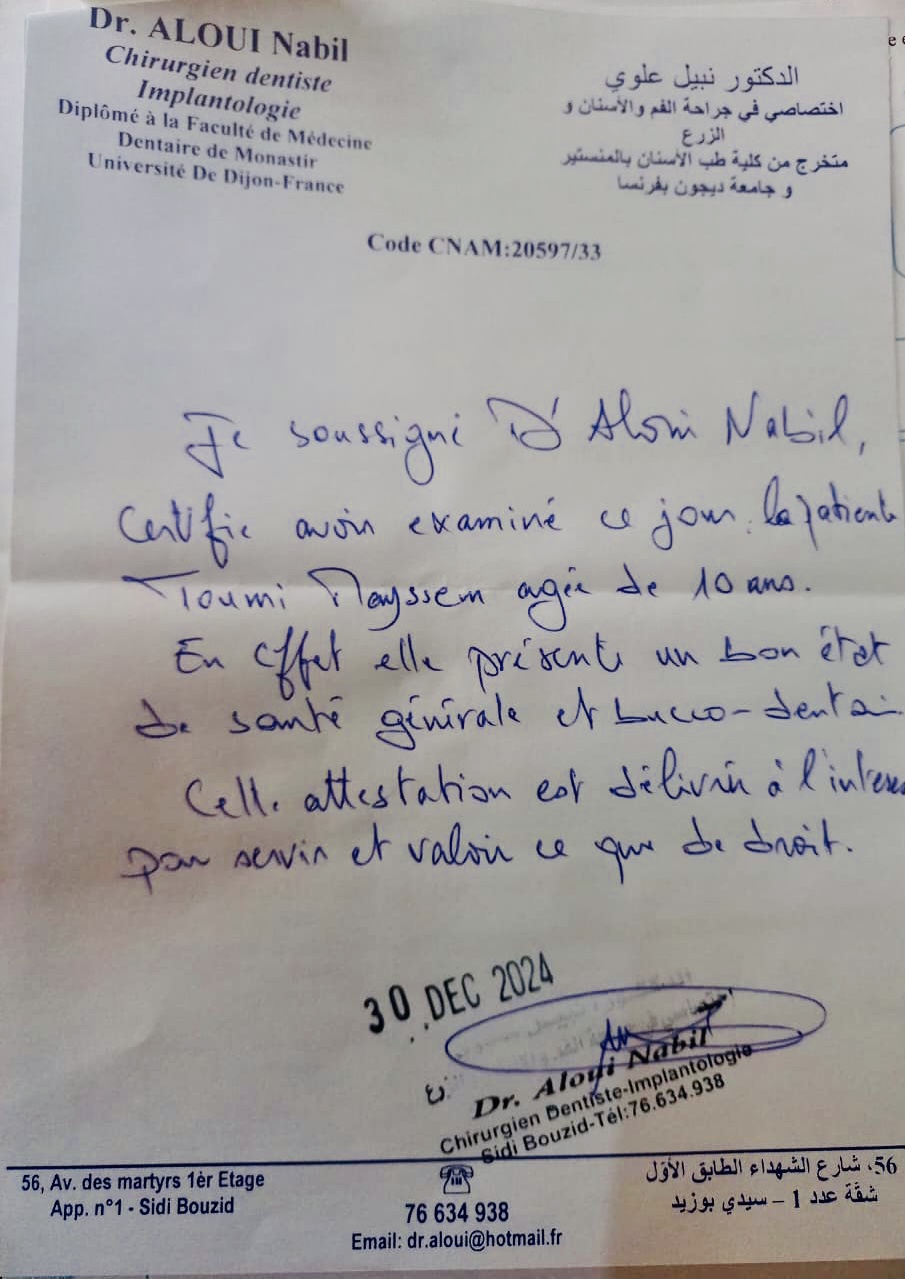 Dr. ALOUI Nabil
Chirurgien dentiste
Implantologie
Diplômé à la Faculté de Médecine
Dentaire de Monastir
Université De Dijon-France
الدكتور نبيل علوي
اختصاصي في جراحة الفم والأسنان و
الزرع
متخرج من كلية طب الأسنان بالمنستير
و جامعة ديجون بفرنسا
Code CNAM:20597/33
Je soussigné Dr Aloui Nabil,
Certifie avoir examiné ce jour la patiente
Toumi Mayssem agée de 10 ans.
En effet elle présente un bon état
de santé générale et bucco-dentai
Cette attestation est délivrée à l'interes
pour servir et valoir ce que de droit.
30 DEC 2024
Dr. Aloui Nabil
Chirurgien Dentiste-Implantologie
Sidi Bouzid-Tél:76.634.938
56, Av. des martyrs 1èr Etage
App. n°1 - Sidi Bouzid
76 634 938
Email: dr.aloui@hotmail.fr
56، شارع الشهداء الطابق الأوّل
شقّة عدد 1 – سيدي بوزيد